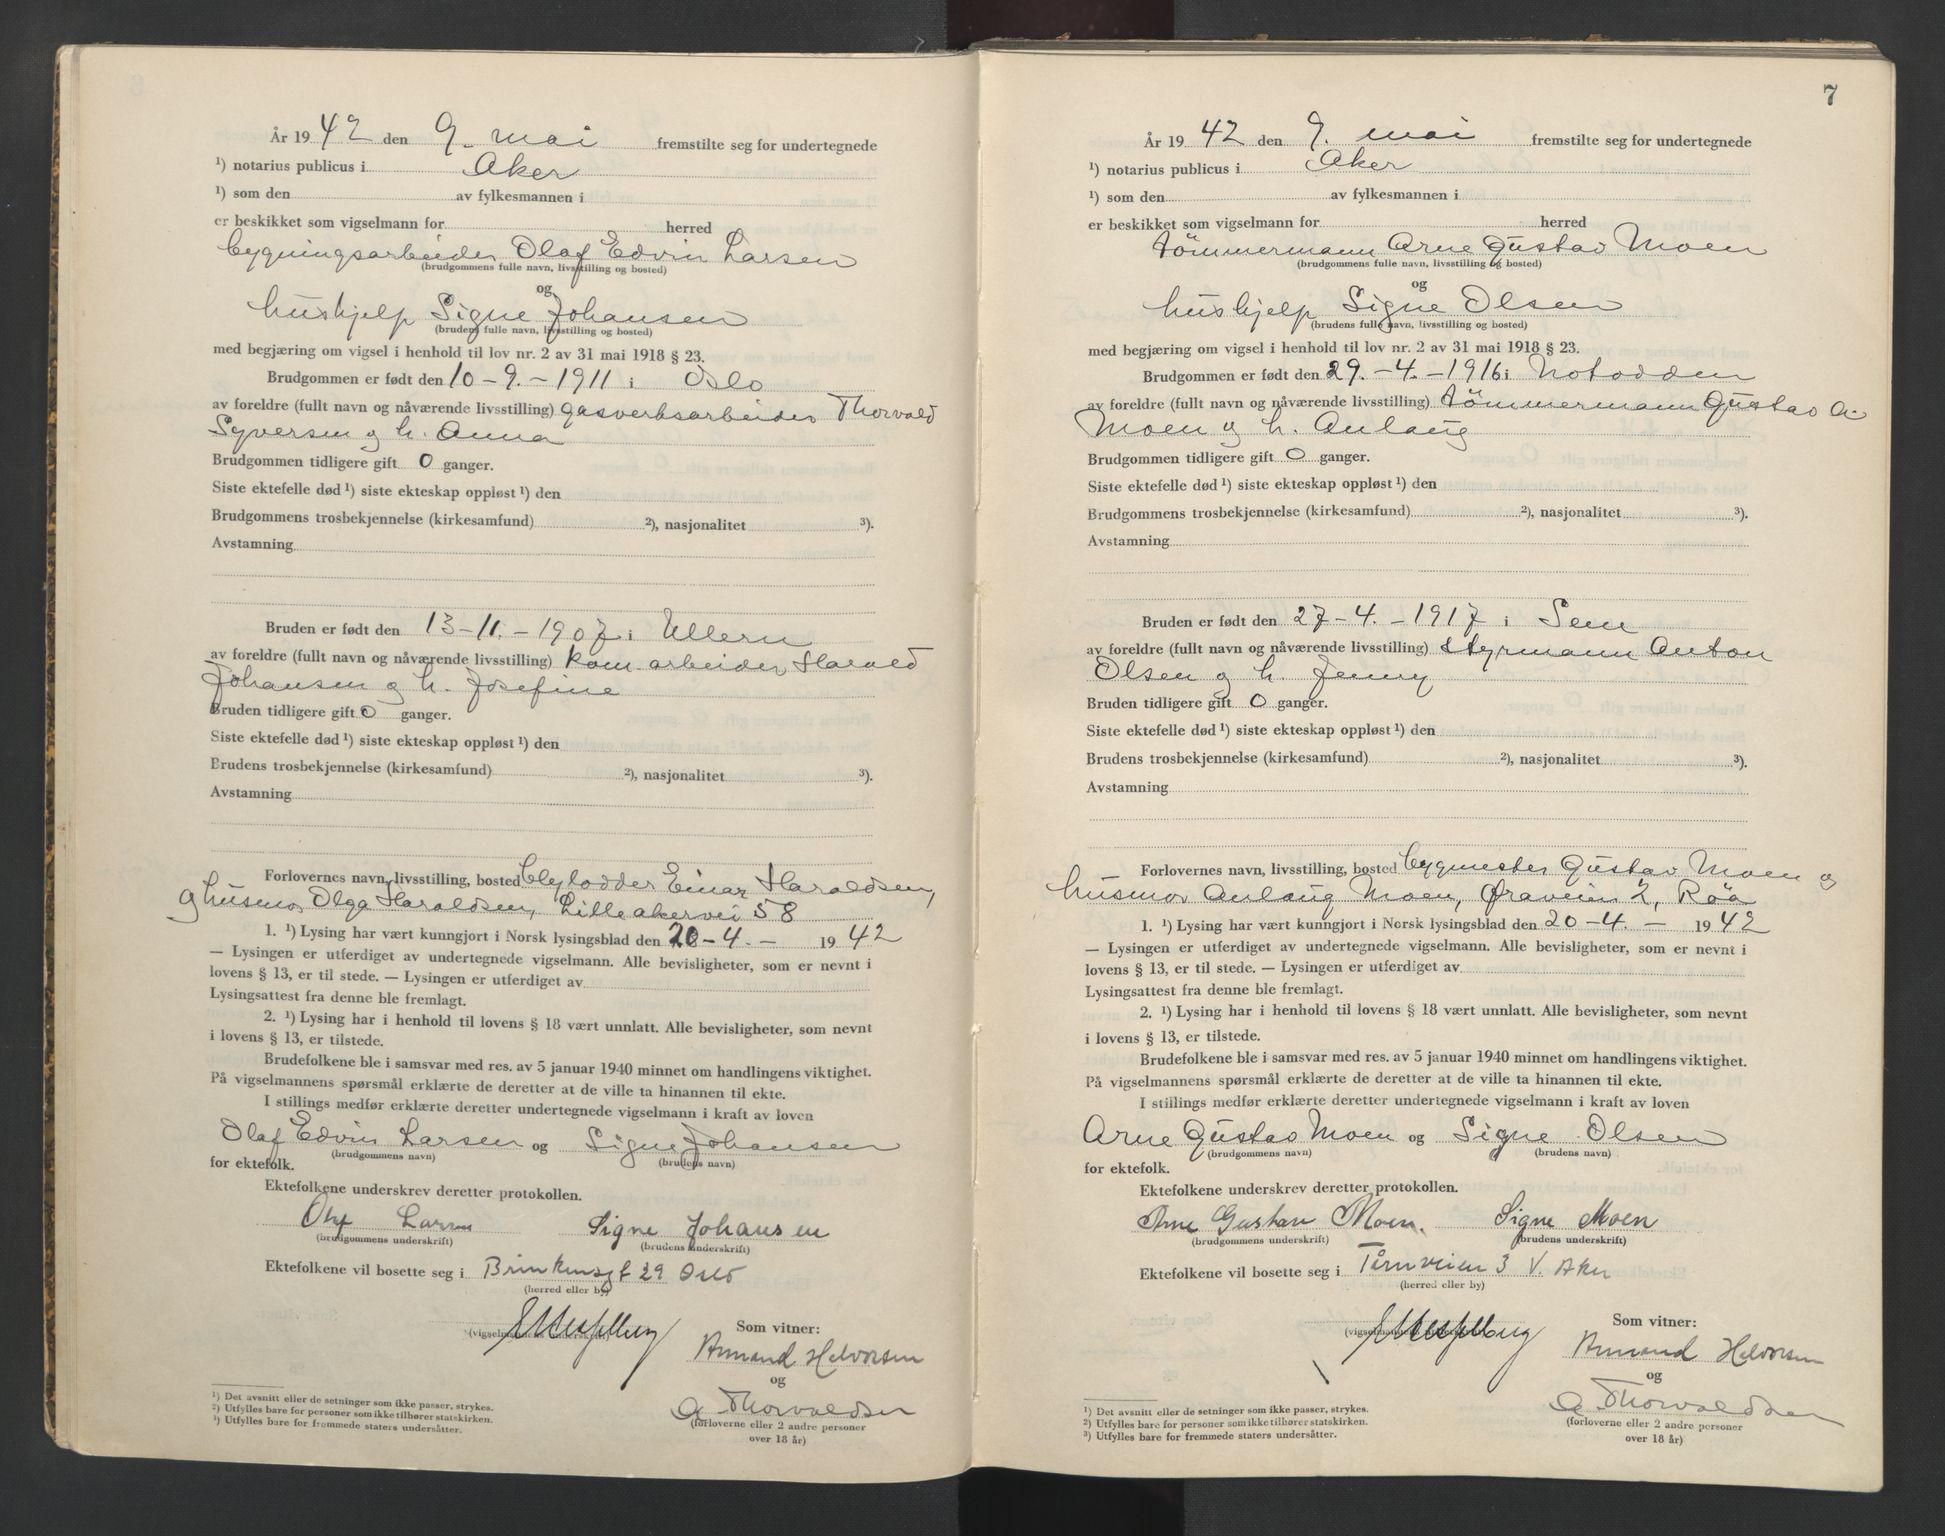 År 1942 den 9. mai fremstilte seg for undertegnede
¹) notarius publicus i Aker
¹) som den av fylkesmannen i
er beskikket som vigselmann for herred
bygningsarbeider Olaf Edvin Larsen
(brudgommens fulle navn, livsstilling og bosted)
og
hushjelp Signe Johansen
(brudens fulle navn, livsstilling og bosted)
med begjæring om vigsel i henhold til lov nr. 2 av 31 mai 1918 § 23.
Brudgommen er født den 10-9.-1911 i Oslo
av foreldre (fullt navn og nåværende livsstilling) gasverksarbeider Thorvald
Syversen og h. Anna
Brudgommen tidligere gift 0 ganger.
Siste ektefelle død ¹) siste ekteskap oppløst ¹) den
Brudgommens trosbekjennelse (kirkesamfund) ²), nasjonalitet ³).
Avstamning
Bruden er født den 13-11.-1907 i Ullern
av foreldre (fullt navn og nåværende livsstilling) kom. arbeider Harald
Johansen og h. Josefine
Bruden tidligere gift 0 ganger.
Siste ektefelle død ¹) siste ekteskap oppløst ¹) den
Brudens trosbekjennelse (kirkesamfund) ²), nasjonalitet ³).
Avstamning
Forlovernes navn, livsstilling, bosted Einar Haraldsen,
og husmor Olga Haraldsen, Lilleakervei 58
1. ¹) Lysing har vært kunngjort i Norsk lysingsblad den 20-4.- 1942
— Lysingen er utferdiget av undertegnede vigselmann. Alle bevisligheter, som er nevnt i
lovens § 13, er til stede. — Lysingen er utferdiget av
Lysingsattest fra denne ble fremlagt.
2. ¹) Lysing har i henhold til lovens § 18 vært unnlatt. Alle bevisligheter, som nevnt
i lovens § 13, er tilstede.
Brudefolkene ble i samsvar med res. av 5 januar 1940 minnet om handlingens viktighet.
På vigselmannens spørsmål erklærte de deretter at de ville ta hinannen til ekte.
I stillings medfør erklærte deretter undertegnede vigselmann i kraft av loven
Olaf Edvin Larsen og Signe Johansen
(brudgommens navn) (brudens navn)
for ektefolk.
Ektefolkene underskrev deretter protokollen.
Olaf Larsen Signe Johansen
(brudgommens underskrift) (brudens underskrift)
Ektefolkene vil bosette seg i Brinkensgt 29 Oslo
(herred eller by)
Som vitner:
Armand Halvorsen
og
A Thorvaldsen
(forloverne eller 2 andre personer
over 18 år)
¹) Det avsnitt eller de setninger som ikke passer, strykes.
²) Utfylles bare for personer som ikke tilhører statskirken.
³) Utfylles bare for fremmede staters undersåtter.
7
År 1942 den 9. mai fremstilte seg for undertegnede
¹) notarius publicus i Aker
¹) som den av fylkesmannen i
er beskikket som vigselmann for herred
tömmermann Arne Gustav Moen
(brudgommens fulle navn, livsstilling og bosted)
og
hushjelp Signe Olsen
(brudens fulle navn, livsstilling og bosted)
med begjæring om vigsel i henhold til lov nr. 2 av 31 mai 1918 § 23.
Brudgommen er født den 29.-4.-1916 i Notodden
av foreldre (fullt navn og nåværende livsstilling) tömmermann Gustav A.
Moen og h. Anlaug
Brudgommen tidligere gift 0 ganger.
Siste ektefelle død ¹) siste ekteskap oppløst ¹) den
Brudgommens trosbekjennelse (kirkesamfund) ²), nasjonalitet ³).
Avstamning
Bruden er født den 27-4.-1917 i Sem
av foreldre (fullt navn og nåværende livsstilling) styrmann Anton
Olsen og h. Jenny
Bruden tidligere gift 0 ganger.
Siste ektefelle død ¹) siste ekteskap oppløst ¹) den
Brudens trosbekjennelse (kirkesamfund) ²), nasjonalitet ³).
Avstamning
Forlovernes navn, livsstilling, bosted bygmester Gustav Moen og
husmor Anlaug Moen, Øraveien 2, Röa
1. ¹) Lysing har vært kunngjort i Norsk lysingsblad den 20-4.- 1942
— Lysingen er utferdiget av undertegnede vigselmann. Alle bevisligheter, som er nevnt i
lovens § 13, er til stede. — Lysingen er utferdiget av
Lysingsattest fra denne ble fremlagt.
2. ¹) Lysing har i henhold til lovens § 18 vært unnlatt. Alle bevisligheter, som nevnt
i lovens § 13, er tilstede.
Brudefolkene ble i samsvar med res. av 5 januar 1940 minnet om handlingens viktighet.
På vigselmannens spørsmål erklærte de deretter at de ville ta hinannen til ekte.
I stillings medfør erklærte deretter undertegnede vigselmann i kraft av loven
Arne Gustav Moen og Signe Olsen
(brudgommens navn) (brudens navn)
for ektefolk.
Ektefolkene underskrev deretter protokollen.
Arne Gustav Moen. Signe Moen
(brudgommens underskrift) (brudens underskrift)
Ektefolkene vil bosette seg i Tårnveien 3 V. Aker
(herred eller by)
Som vitner:
Armand Halvorsen
og
A Thorvaldsen
(forloverne eller 2 andre personer
over 18 år)
¹) Det avsnitt eller de setninger som ikke passer, strykes.
²) Utfylles bare for personer som ikke tilhører statskirken.
³) Utfylles bare for fremmede staters undersåtter.